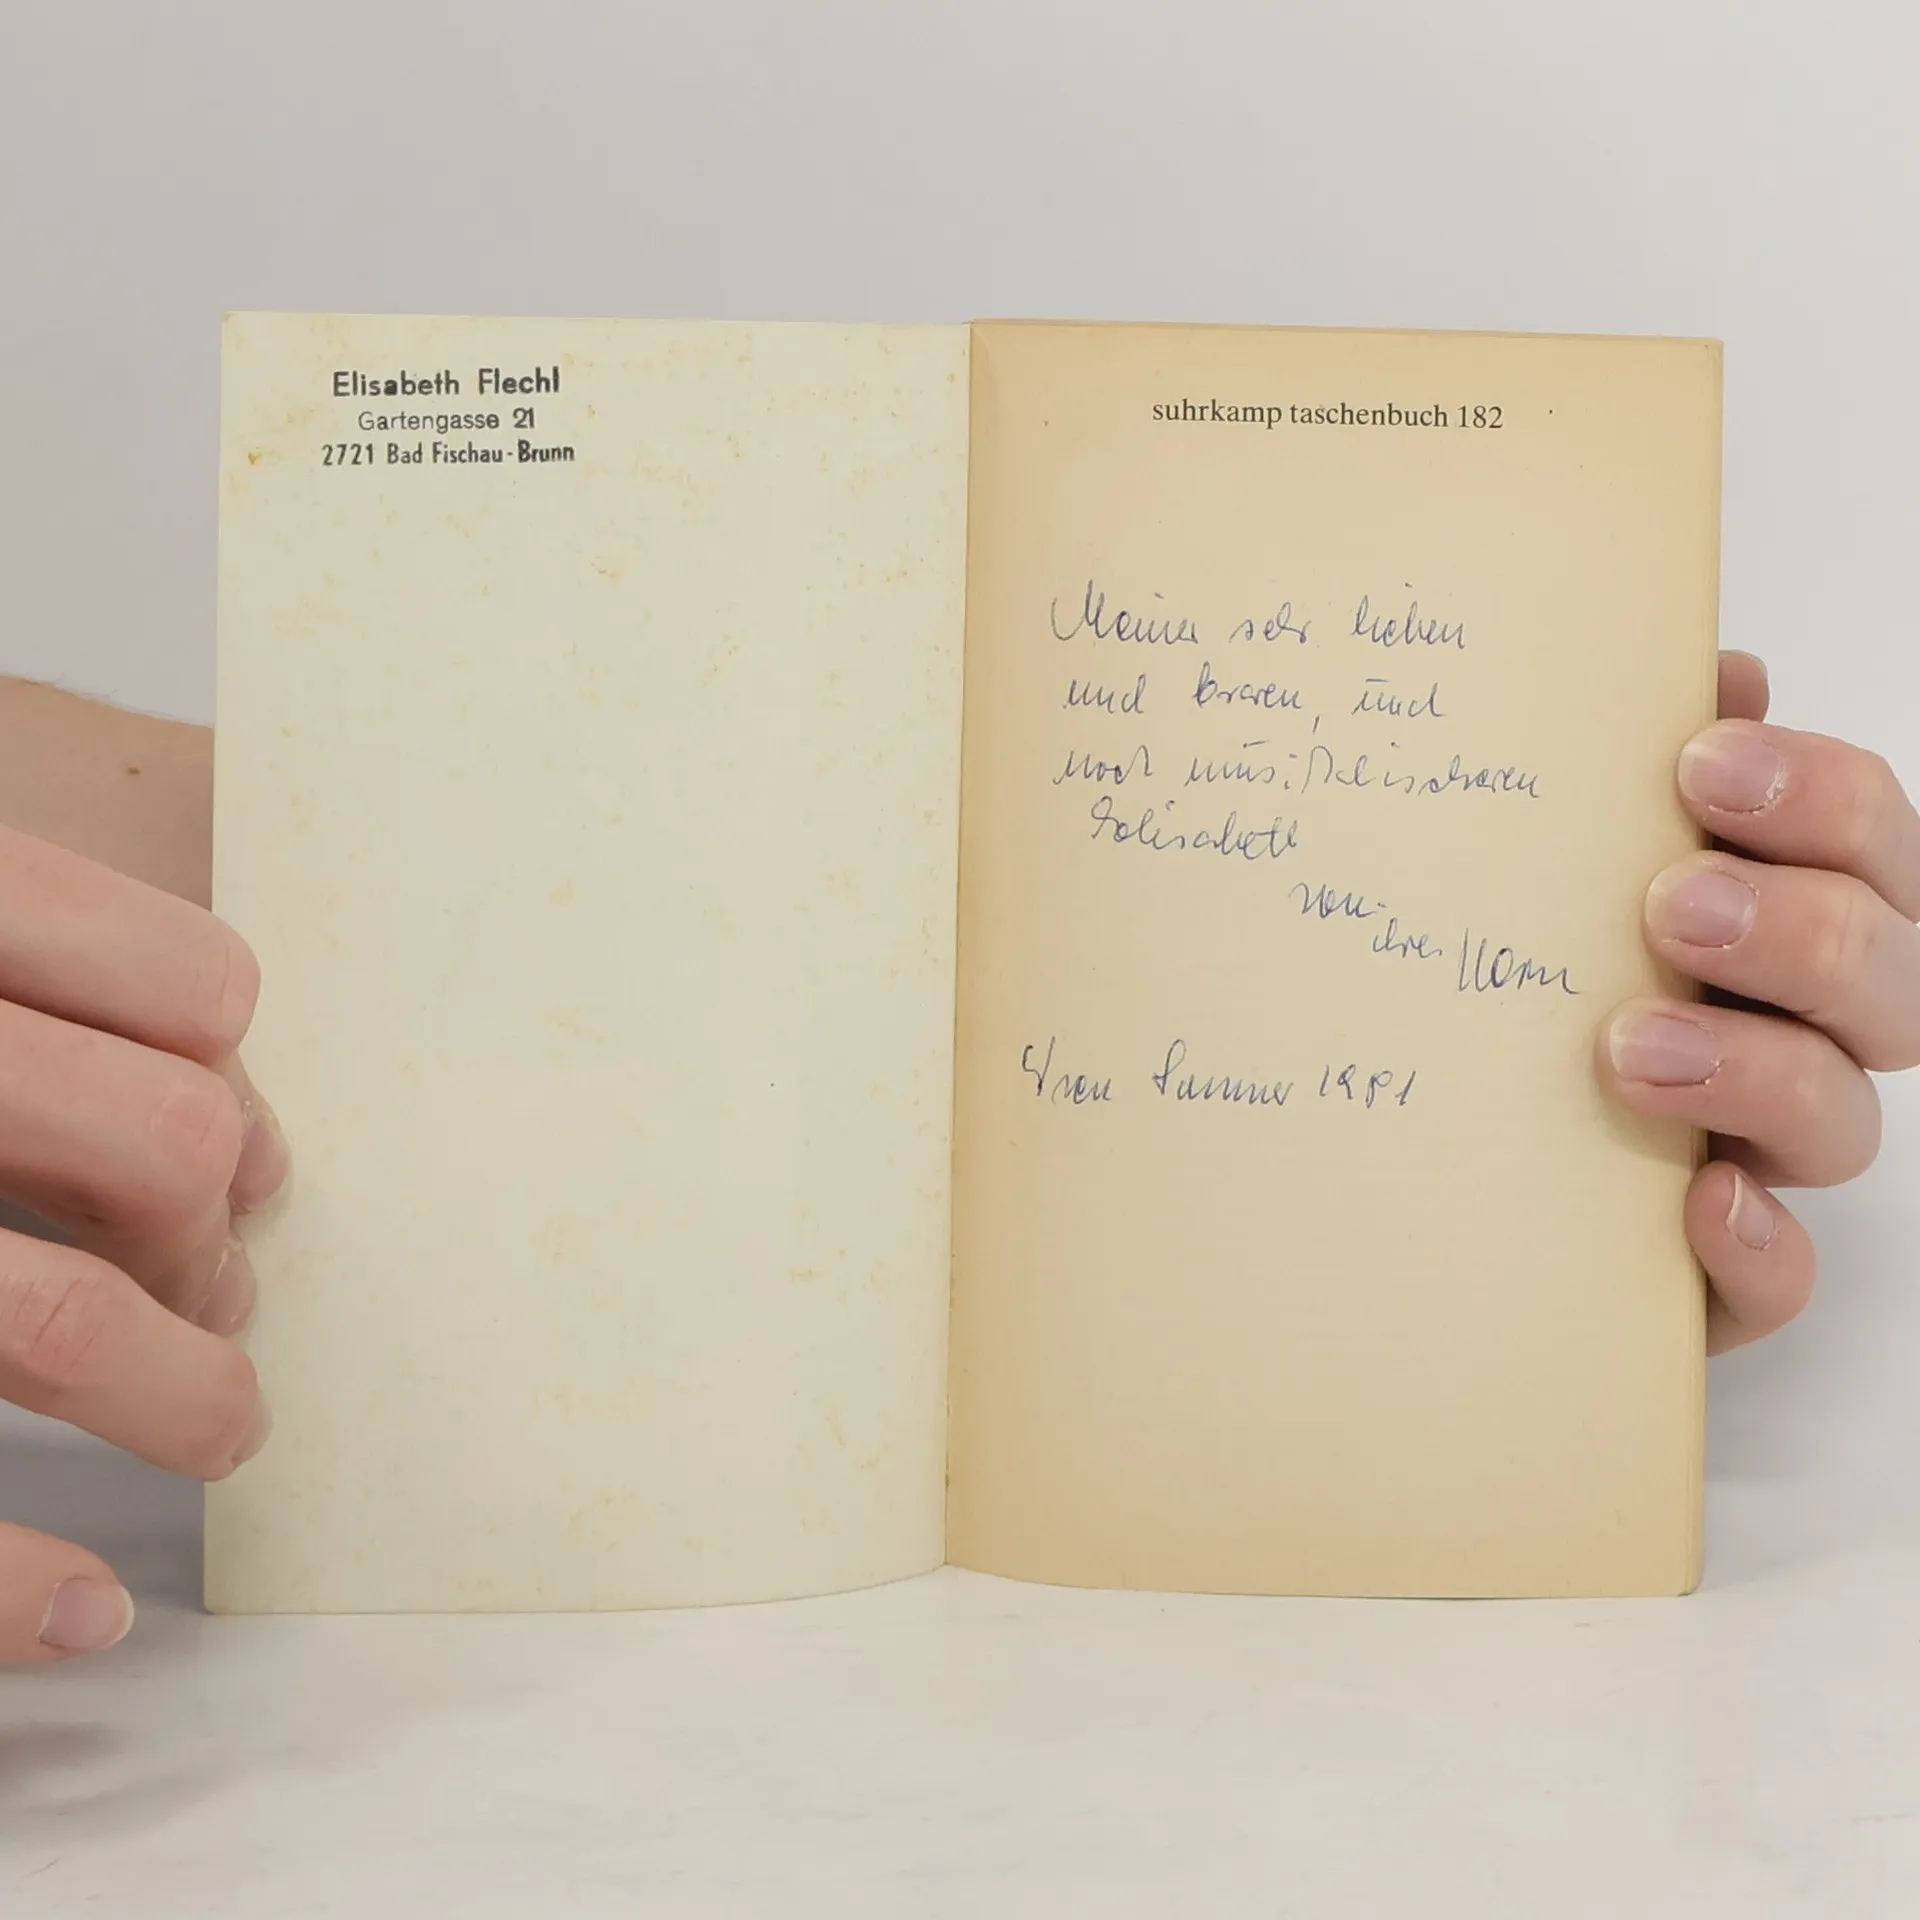 Elisabeth Flechl
Gartengasse 21
2721 Bad Fischau-Brunn
suhrkamp taschenbuch 182
Meiner sehr lieben
und braven, und
noch musikalischeren
Elisabeth
von
ihrer
Wien Sommer 1981